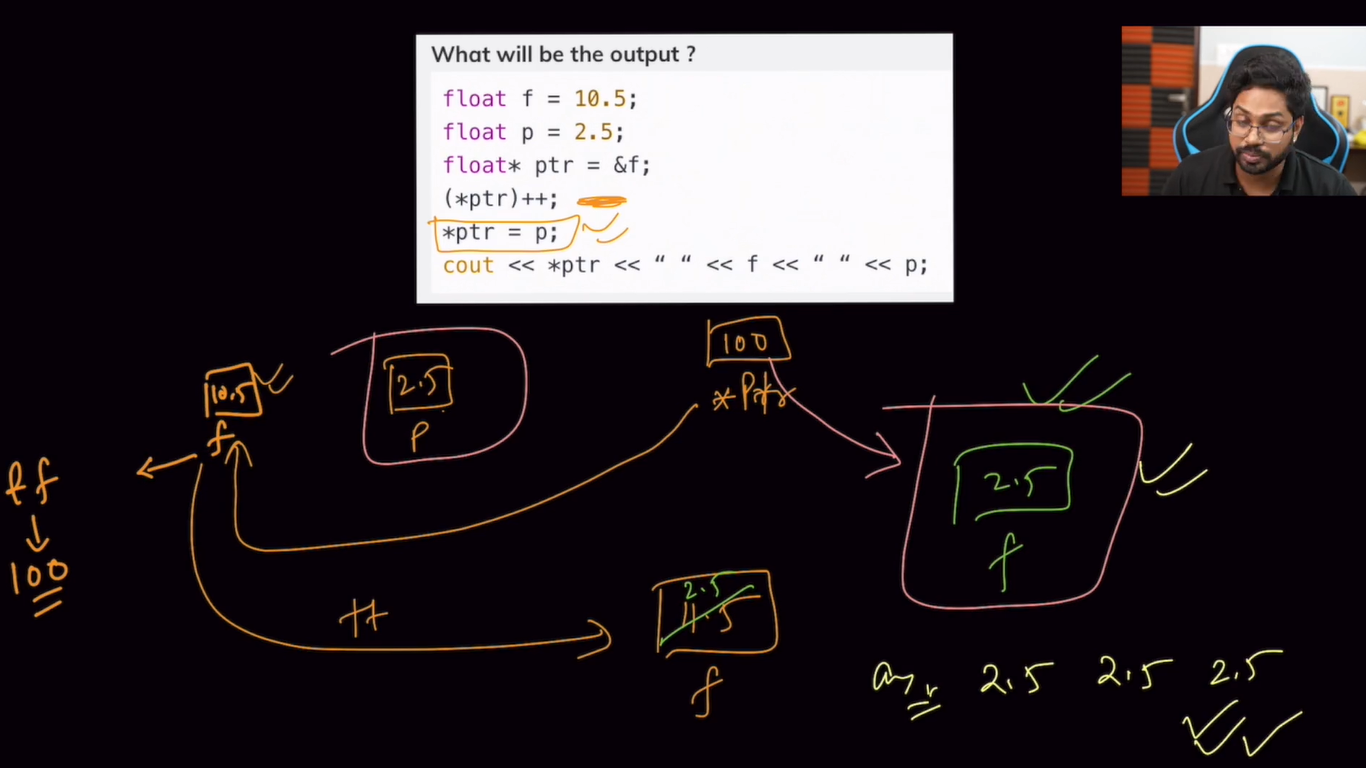 What will be the output ?
float f = 10.5;
float p = 2.5;
float* ptr = &f;
(*ptr)++;
*ptr = p;
cout << *ptr << “ “ << f << “ “ << p;
100
*Ptr
10.5
f
2.5
P
2.5
f
&f
100
++
2.5
11.5
f
ans 2.5 2.5 2.5